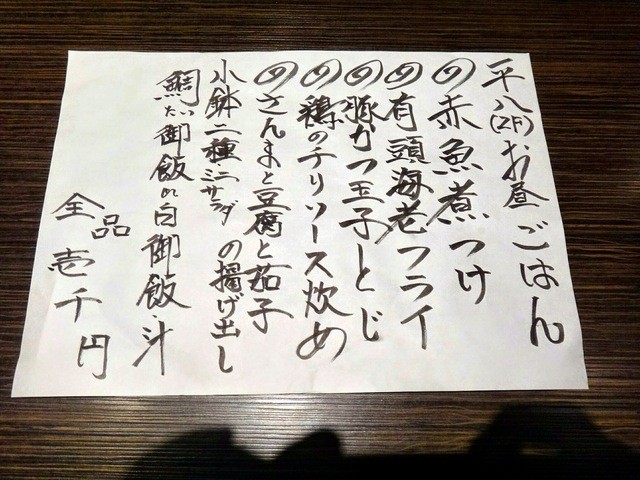 平八(2F)お昼ごはん
の赤魚煮つけ
の有頭海老フライ
の豚カツ玉子とじ
の鶏のチリソース炒め
のさんまと豆腐と茄子
の揚げ出し
小鉢二種ミニサラダ
鯛たい御飯or白御飯、汁
全品
壱千円